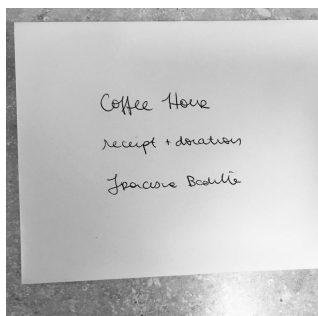 Coffee Hour
receipt + donations
Francesca